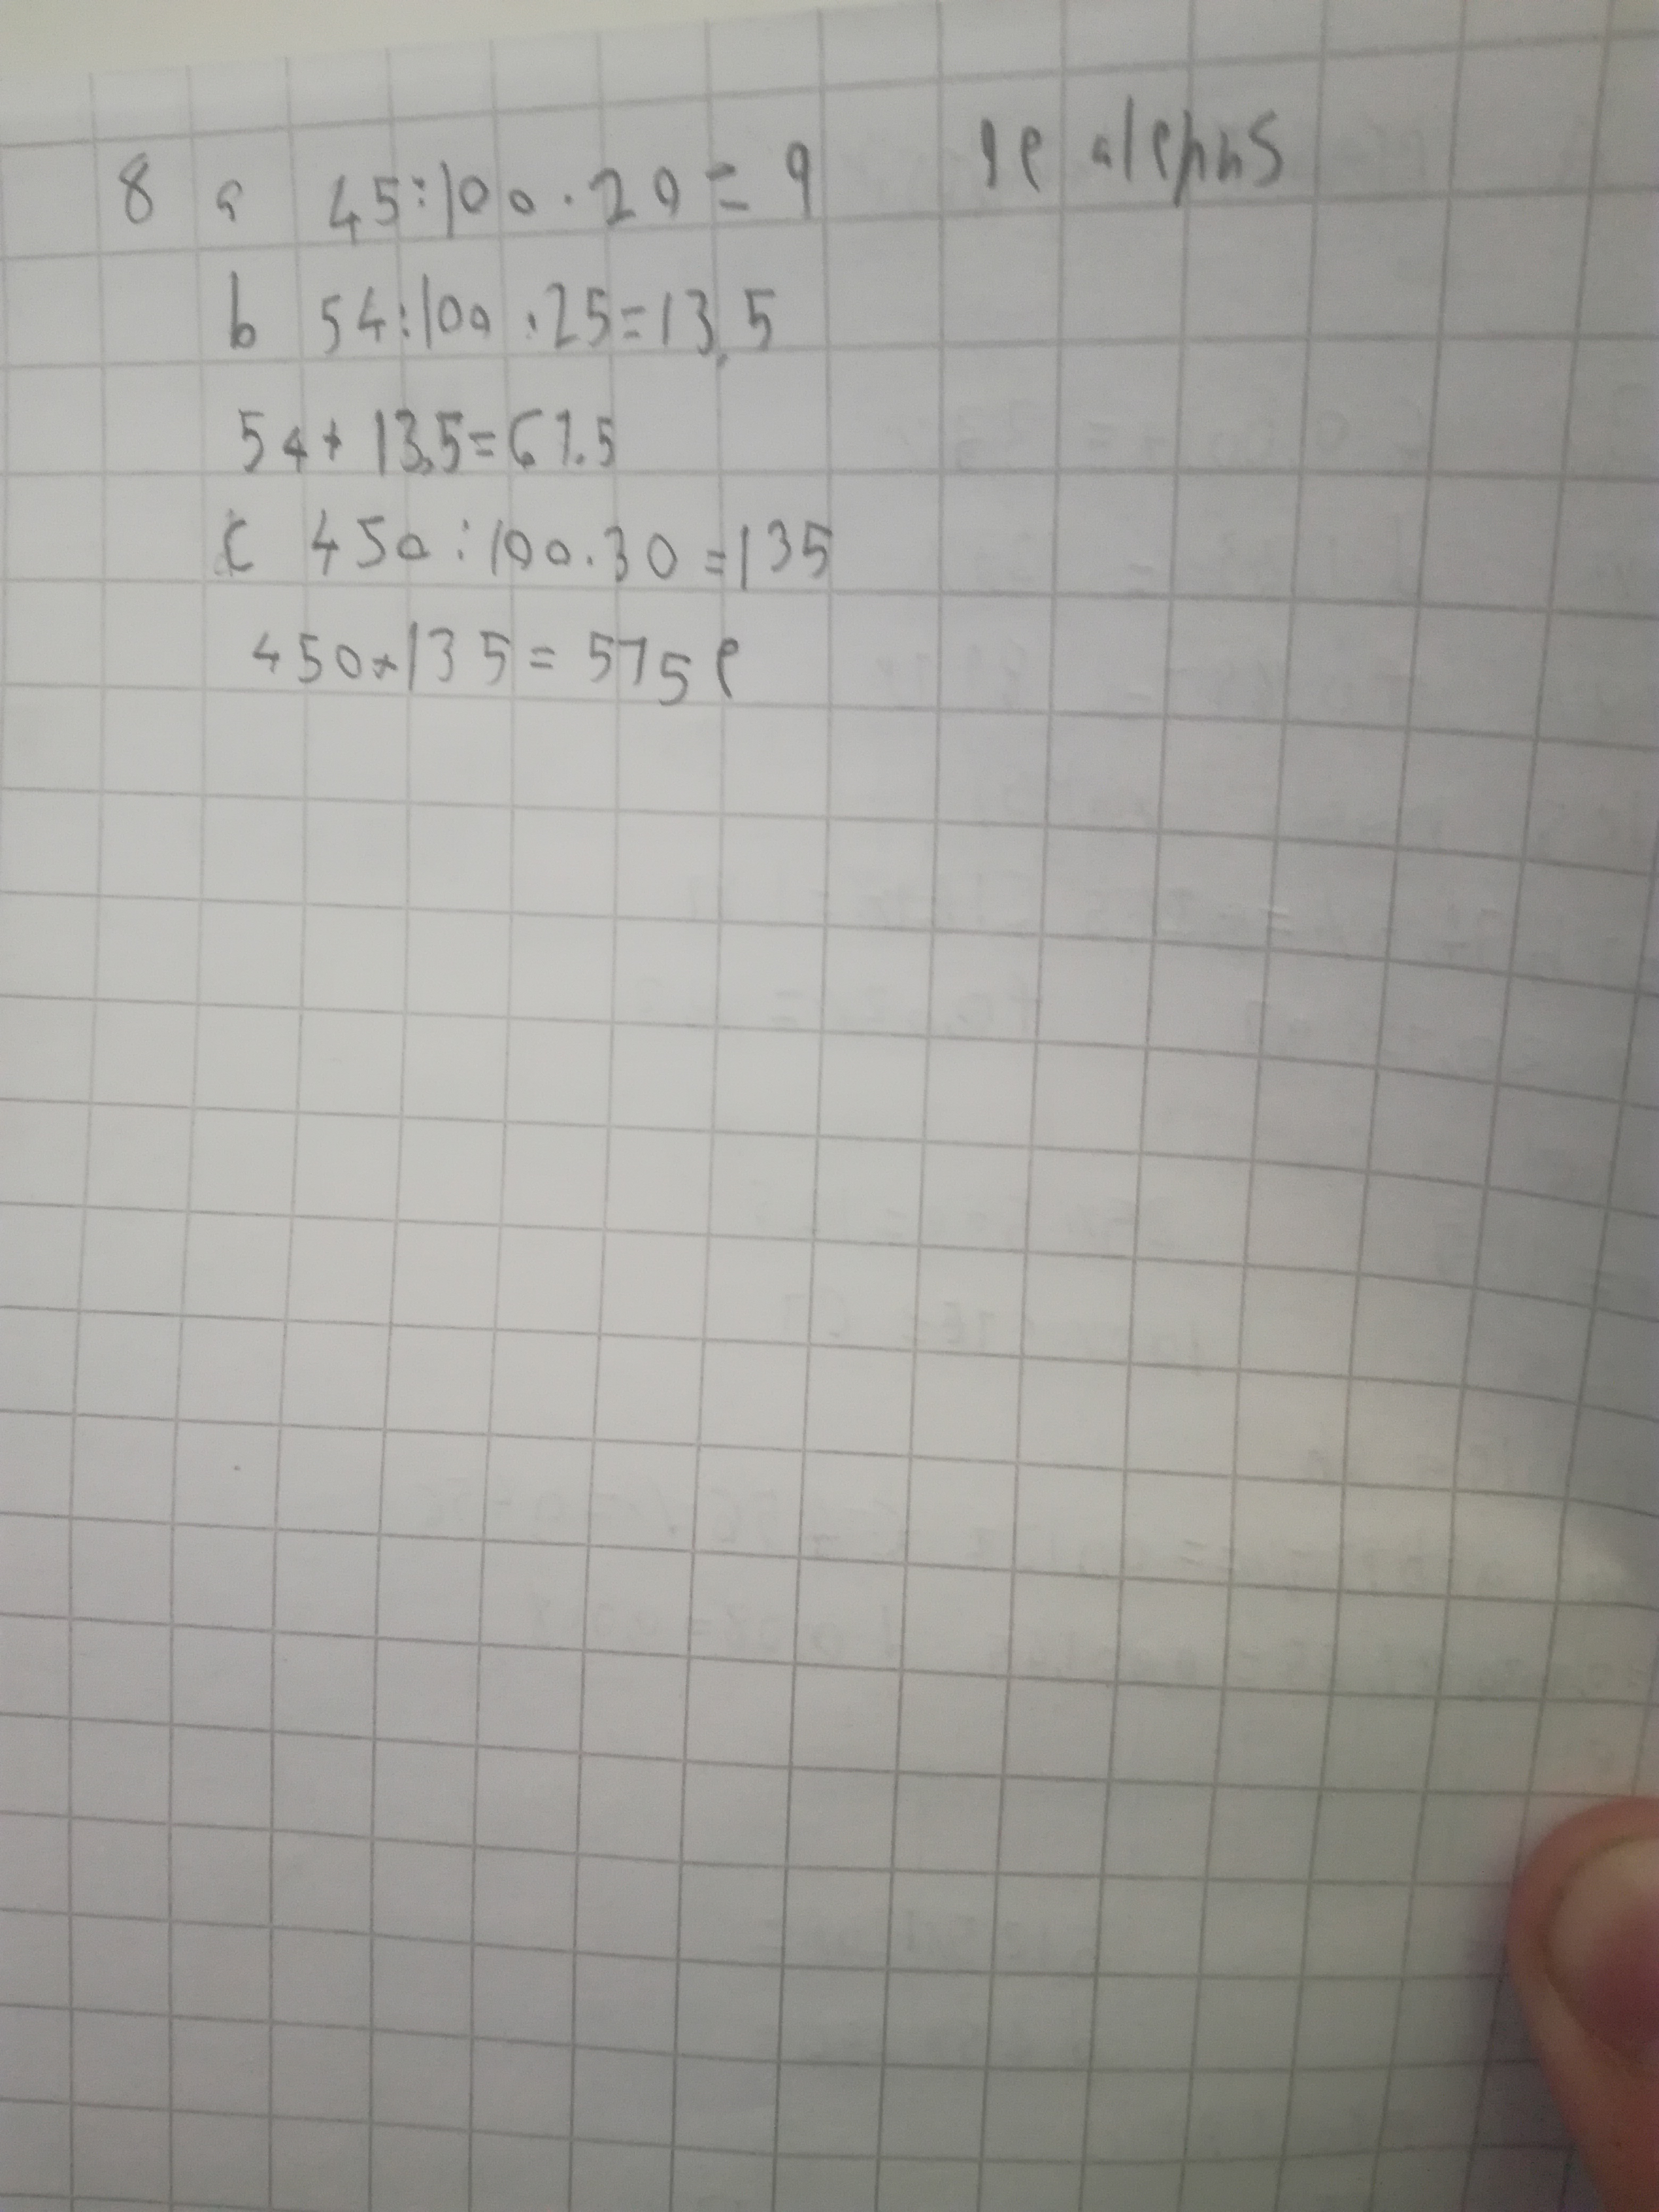 8 a 45:100·20=9
b 54:100·25=13,5
54+13,5=67.5
c 450:100·30=135
450+135=575 e